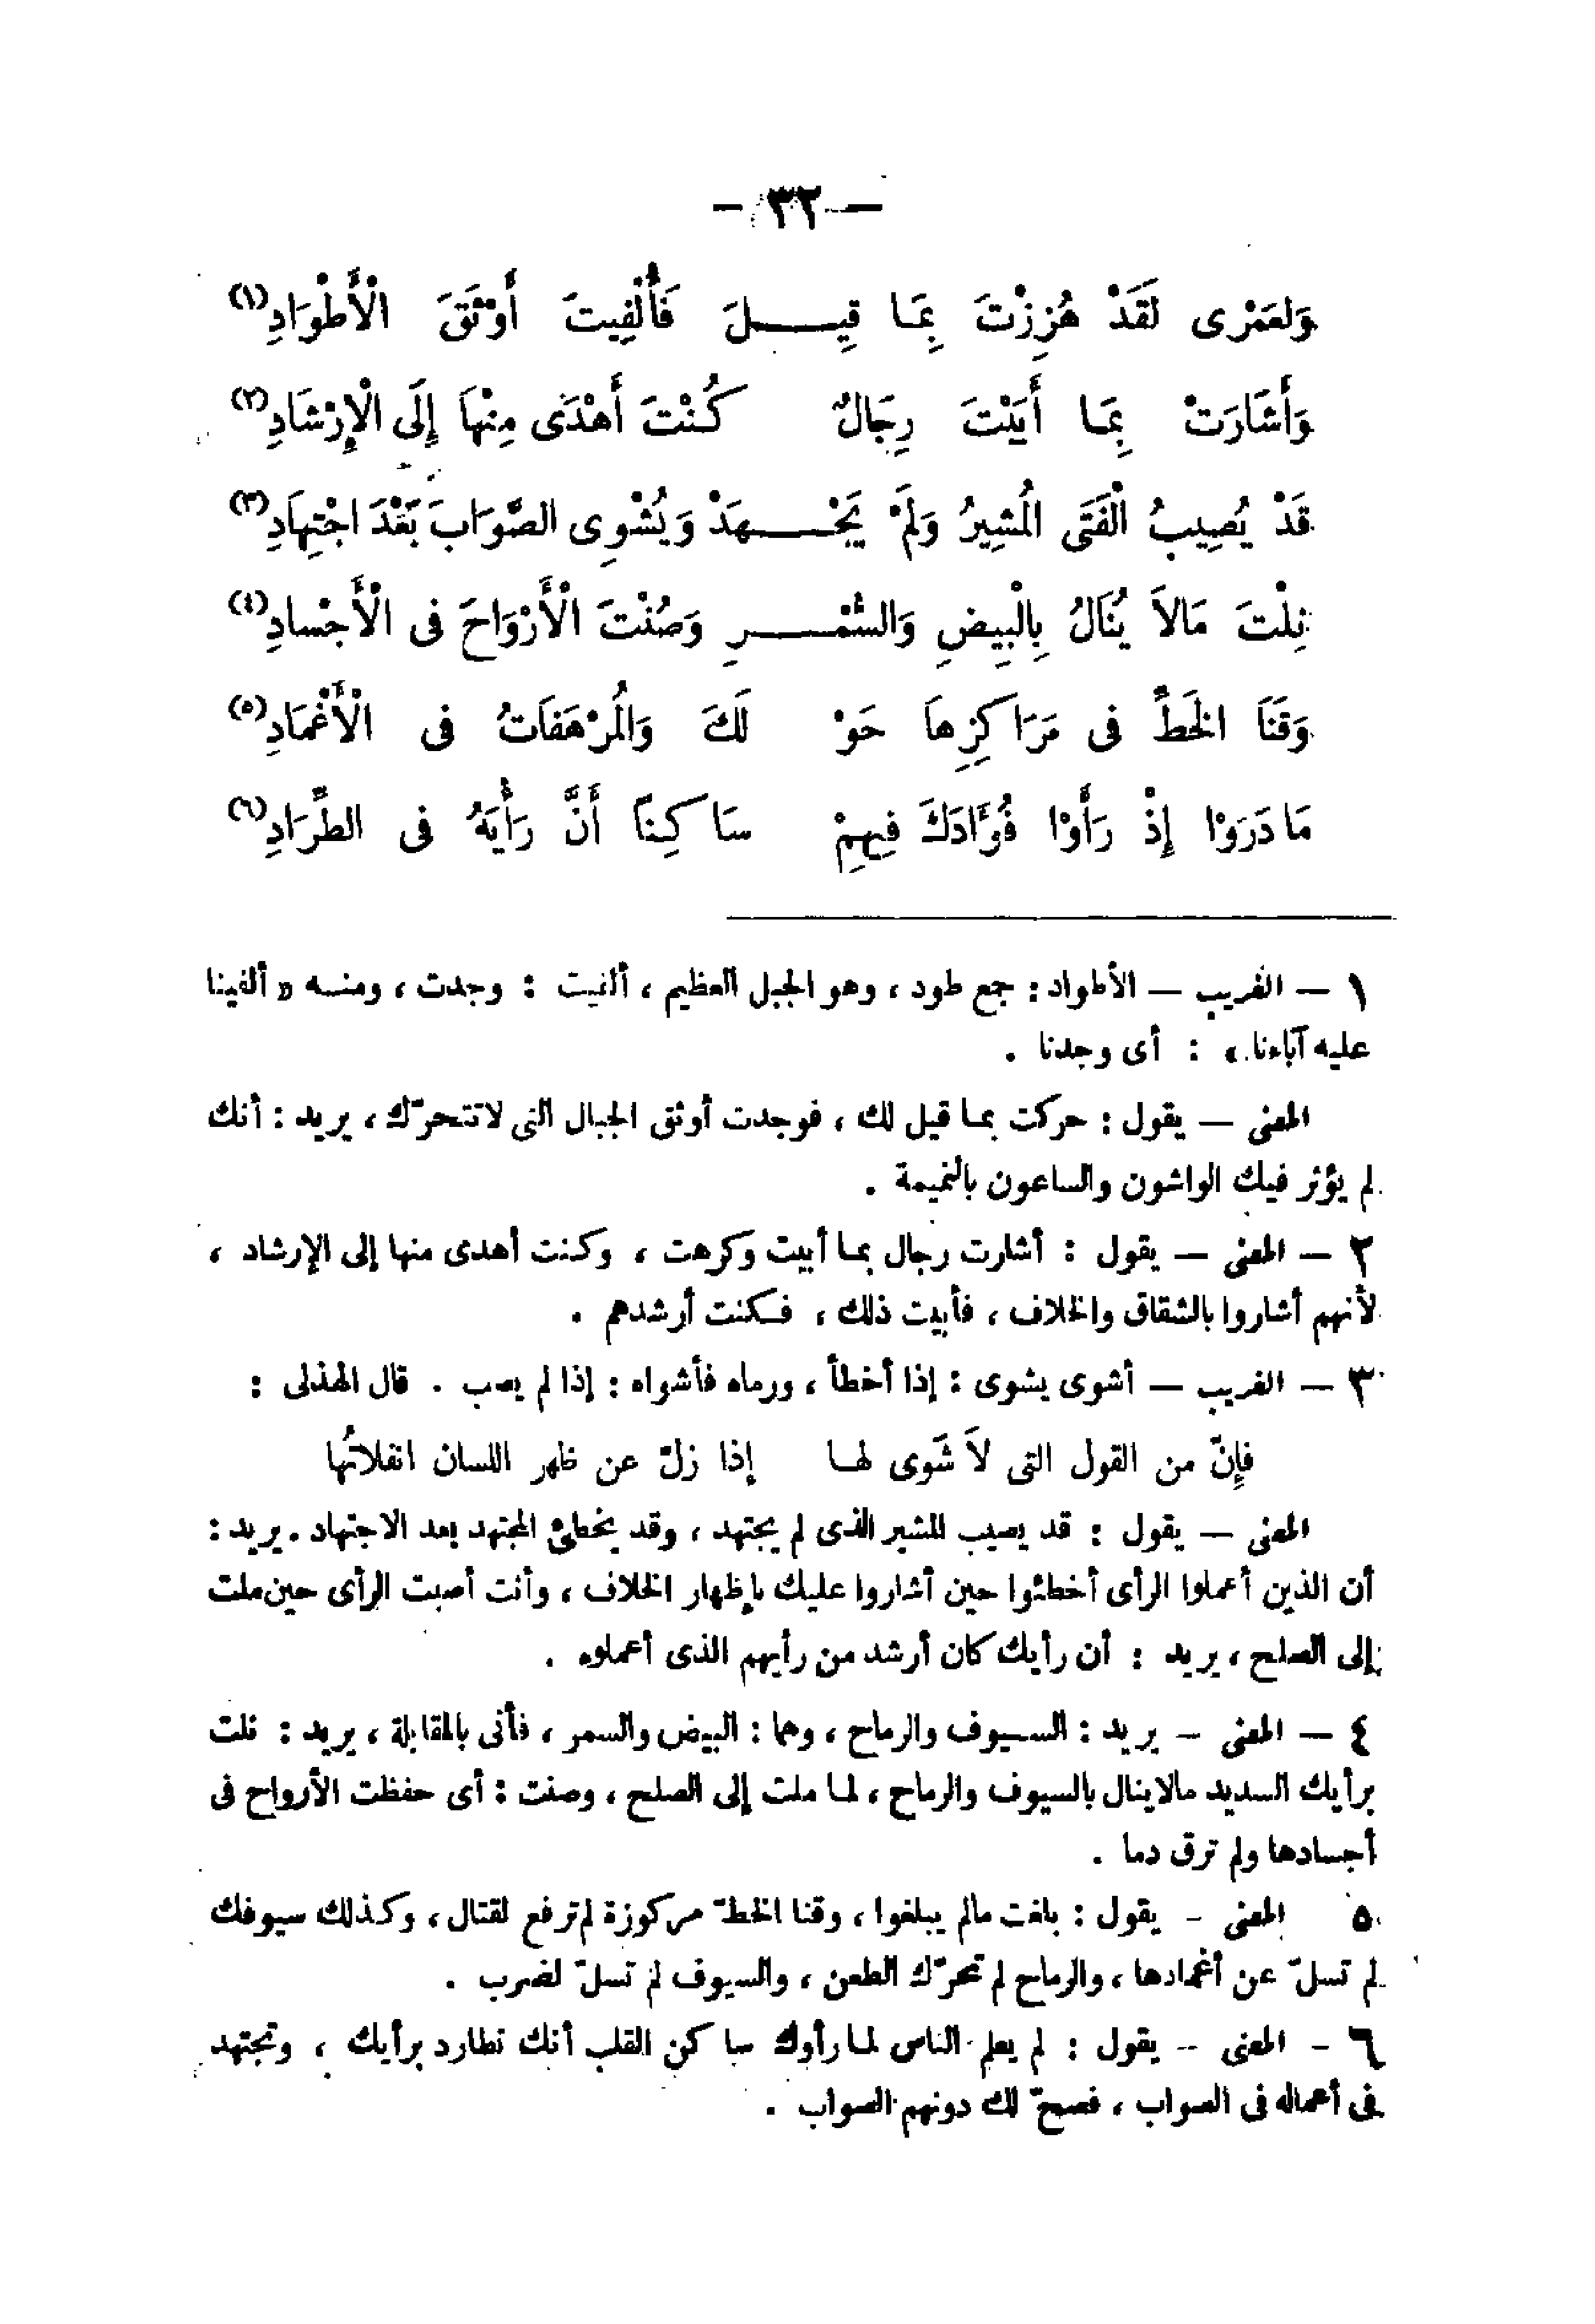 — ٣٢ —
وَلَعَمْرِى لَقَدْ هُزِزْتَ بِمَا قِيـــلَ فَأُلْفِيتَ أَوْثَقَ الْأَطْوَادِ(١)
وَأَشَارَتْ بِمَا أَبَيْتَ رِجَالٌ كُنْتَ أَهْدَى مِنْهَا إِلَى الْإِرْشَادِ(٢)
قَدْ يُصِيبُ الْفَتَى الْمُشِيرُ وَلَمْ يَجْـــهَدْ وَيُشْوِى الصَّوَابَ بَعْدَ اجْتِهَادِ(٣)
نِلْتَ مَالاَ يُنَالُ بِالْبِيضِ وَالسُّمْـــرِ وَصُنْتَ الْأَرْوَاحَ فى الْأَجْسادِ(٤)
وَقَنَا الخَطِّ فى مَرَاكِزِهاَ حَوْ لَكَ وَالْمُرْهَفَاتُ فى الْأَغْمَادِ(٥)
مَا دَرَوْا إِذْ رَأَوْا فُؤَادَكَ فِيهِمْ سَاكِنًا أَنَّ رَأْيَهُ فى الطِّرَادِ(٦)
١ — الغريب — الأطواد : جمع طود ، وهو الجبل العظيم ، ألفيت : وجدت ، ومنه « ألفينا
عليه آباءنا » : أى وجدنا .
المعنى — يقول : حركت بما قيل لك ، فوجدت أوثق الجبال التى لاتتحرّك ، يريد : أنك
لم يؤثر فيك الواشون والساعون بالنميمة .
٢ — المعنى — يقول : أشارت رجال بما أبيت وكرهت ، وكنت أهدى منها إلى الإرشاد ،
لأنهم أشاروا بالشقاق والخلاف ، فأبيت ذلك ، فكنت أرشدهم .
٣ — الغريب — أشوى يشوى : إذا أخطأ ، ورماه فأشواه : إذا لم يصب . قال الهذلى :
فإنّ من القول التى لاَ شَوى لها إذا زلّ عن ظهر اللسان انفلاتُها
المعنى — يقول : قد يصيب المشير الذى لم يجتهد ، وقد يخطئ المجتهد بعد الاجتهاد . يريد :
أن الذين أعملوا الرأى أخطئوا حين أشاروا عليك بإظهار الخلاف ، وأنت أصبت الرأى حين ملت
إلى الصلح ، يريد : أن رأيك كان أرشد من رأيهم الذى أعملوه .
٤ — المعنى - يريد : السيوف والرماح ، وهما : البيض والسمر ، فأتى بالمقابلة ، يريد : نلت
برأيك السديد مالاينال بالسيوف والرماح ، لما ملت إلى الصلح ، وصنت : أى حفظت الأرواح فى
أجسادها ولم ترق دما .
٥ المعنى - يقول : بلغت مالم يبلغوا ، وقنا الخطّ مركوزة لم ترفع لقتال ، وكذلك سيوفك
لم تسلّ عن أغمادها ، والرماح لم تحرّك الطعن ، والسيوف لم تسلّ لضرب .
٦ - المعنى - يقول : لم يعلم الناس لما رأوك ساكن القلب أنك تطارد برأيك ، وتجتهد
فى أعماله فى الصواب ، فصحّ لك دونهم الصواب .